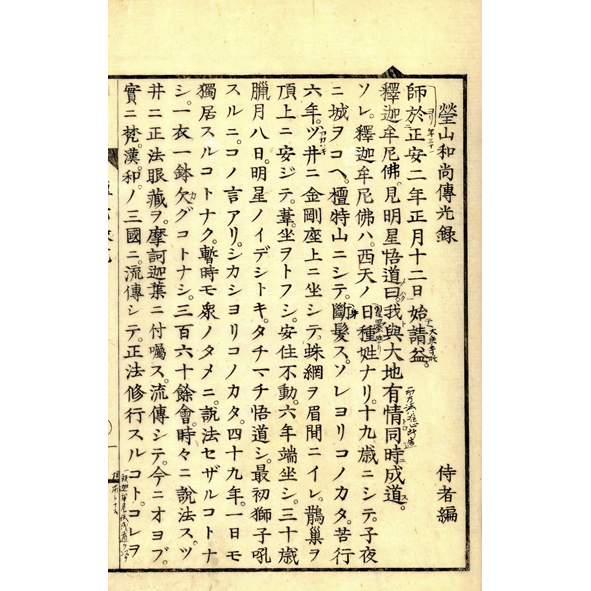 瑩山和尚傳光錄
侍者編
師於正安二年正月十二日始請益。
釋迦牟尼佛。見明星悟道曰。我與大地有情。同時成道。
ソレ。釋迦牟尼佛ハ。西天ノ日種姓ナリ。十九歳ニシテ。子夜
ニ城ヲコヘ。檀特山ニシテ。斷髮ス。ソレヨリコノカタ。苦行
六年。ツ井ニ金剛座上ニ坐シテ。蛛網ヲ眉間ニイレ。鵲巢ヲ
頂上ニ安ジテ。葦坐ヲトフシ。安住不動。六年端坐シ。三十歳
臘月八日。明星ノイデシトキ。タチマチ悟道シ。最初獅子吼
スルニ。コノ言アリ。シカシヨリコノカタ。四十九年。一日モ
獨居スルコトナク。暫時モ衆ノタメニ。説法セザルコトナ
シ。一衣一鉢欠グコトナシ。三百六十餘會。時々ニ説法ス。ツ
井ニ正法眼藏ヲ。摩訶迦葉ニ付囑ス。流傳シテ。今ニオヨブ。
實ニ梵。漢。和ノ三國ニ。流傳シテ。正法修行スルコト。コレヲ